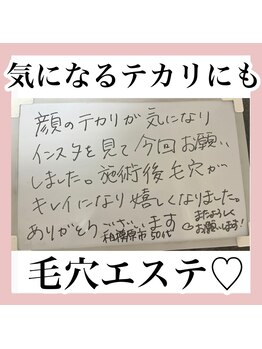 気になるテカリにも
顔のテカリが気になり
インスタを見て今回お願い
しました。施術後毛穴が
キレイになり嬉しくなりました。
ありがとうございます
相模原市 50代
またよろしく
お願いします!
毛穴エステ♡